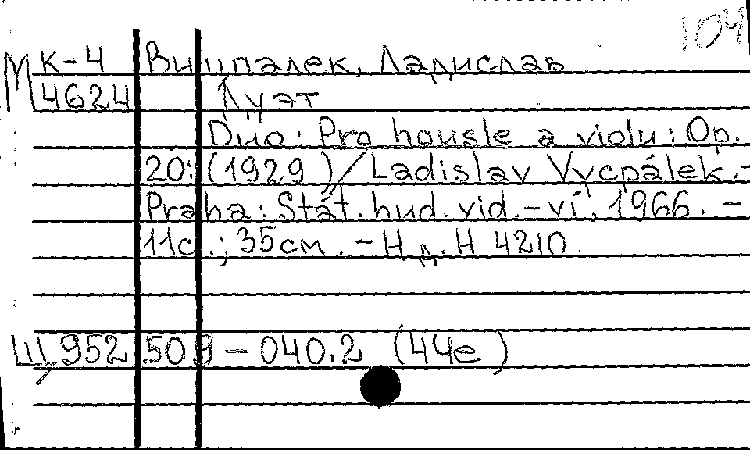 104
М К-4 Вицпалек, Ладислав
4624 Дуэт
Duo: Pro housle a violu: Op.
20: (1929) / Ladislav Vycpálek. -
Praha: Stát. hud. vid. - ví, 1966. -
11с.; 35см. - Н.д. Н 4210.
Щ 952 509 - 040.2 (4Че)